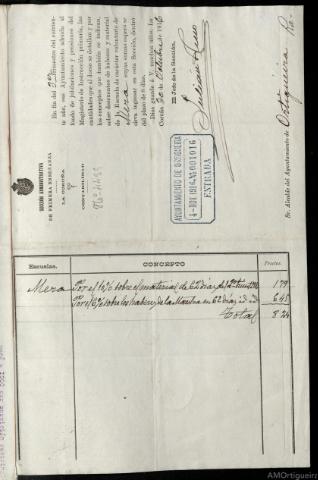 SECCIÓN ADMINISTRATIVA
DE PRIMERA ENSEÑANZA
LA CORUÑA
CONTABILIDAD
En fin del 3er trimestre del corrien-
te año, ese Ayuntamiento adeuda al
fondo de jubilaciones y pensiones del
Magisterio de Instrucción primaria, las
cantidades que al dorso se detallan y por
los conceptos que también se indican
sobre descuentos de haberes y material
de Escuela de carácter voluntario de
Mera
cuyo importe espero se
sirva ingresar en esta Sección, dentro
del plazo de 8 días.
Dios guarde á V. muchos años. La
Coruña 30 de Octubre de 1916
El Jefe de la Sección,
AYUNTAMIENTO DE ORTIGUEIRA
4-NOV.1916 № 001016
ENTRADA
Sr. Alcalde del Ayuntamiento de Ortigueira
Escuelas.
CONCEPTO
Pesetas.
Mera
Por el 10% sobre el material de 62 días del 3er trim.
1'79
Por el 6% sobre los haberes de la Maestra en 62 días id. id.
6'45
Total
8'24
AMOrtigueira